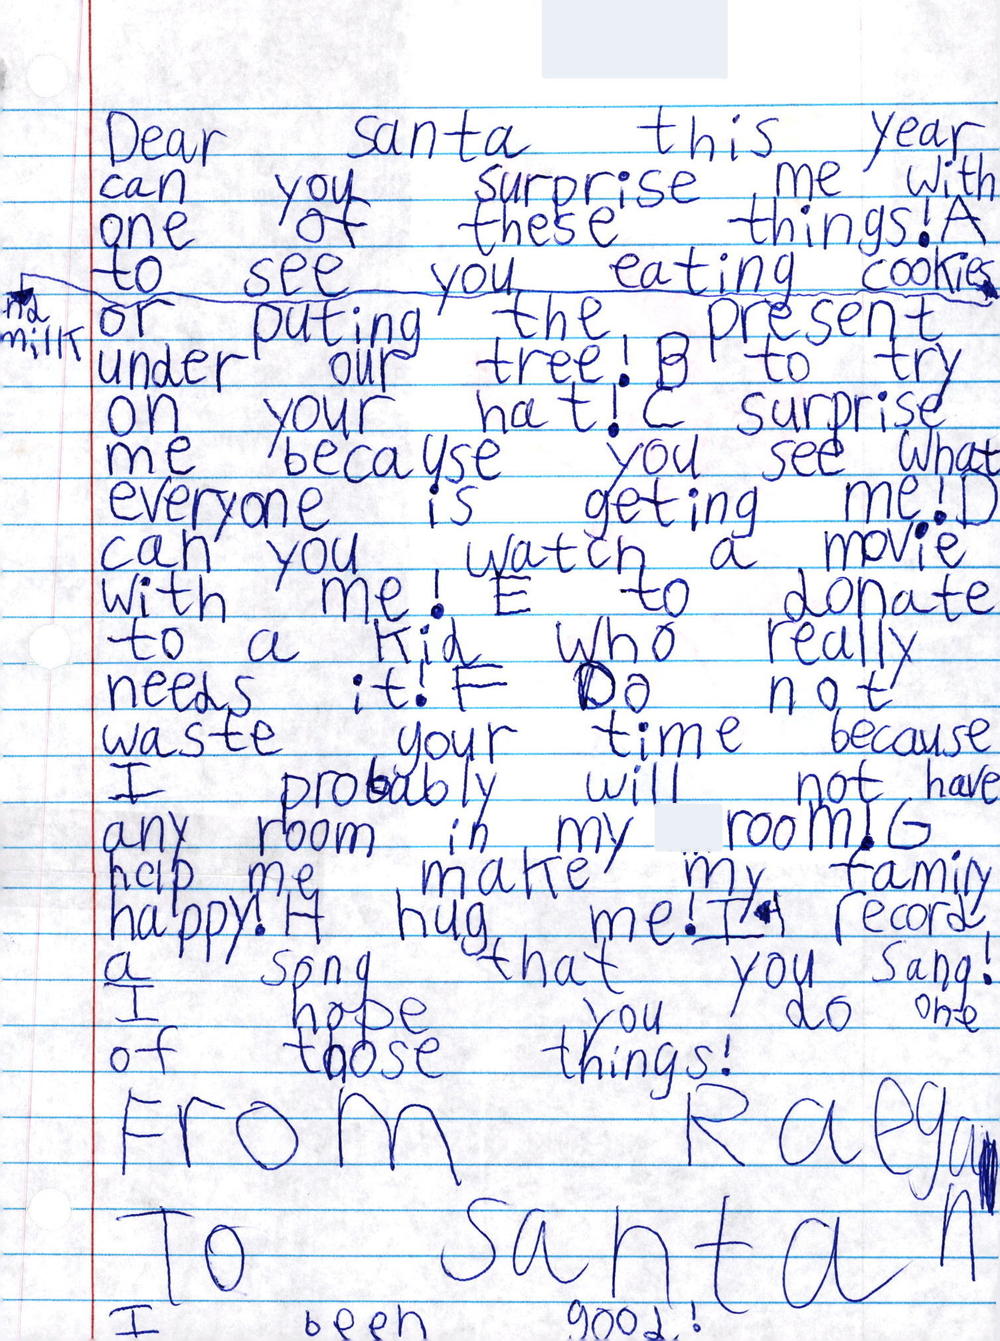 Dear santa this year
can you surprise me with
one of these things! A
to see you eating cookies
nd
milk
or puting the present
under our tree! B to try
on your hat! C surprise
me because you see what
everyone is geting me! D
can you watch a movie
with me! E to donate
to a kid who really
needs it! F Do not
waste your time because
I probably will not have
any room in my room! G
help me make my family
happy! H hug me! I record
a song that you sang!
I hope you do one
of those things!
From Raegan
To Santa
I been good!